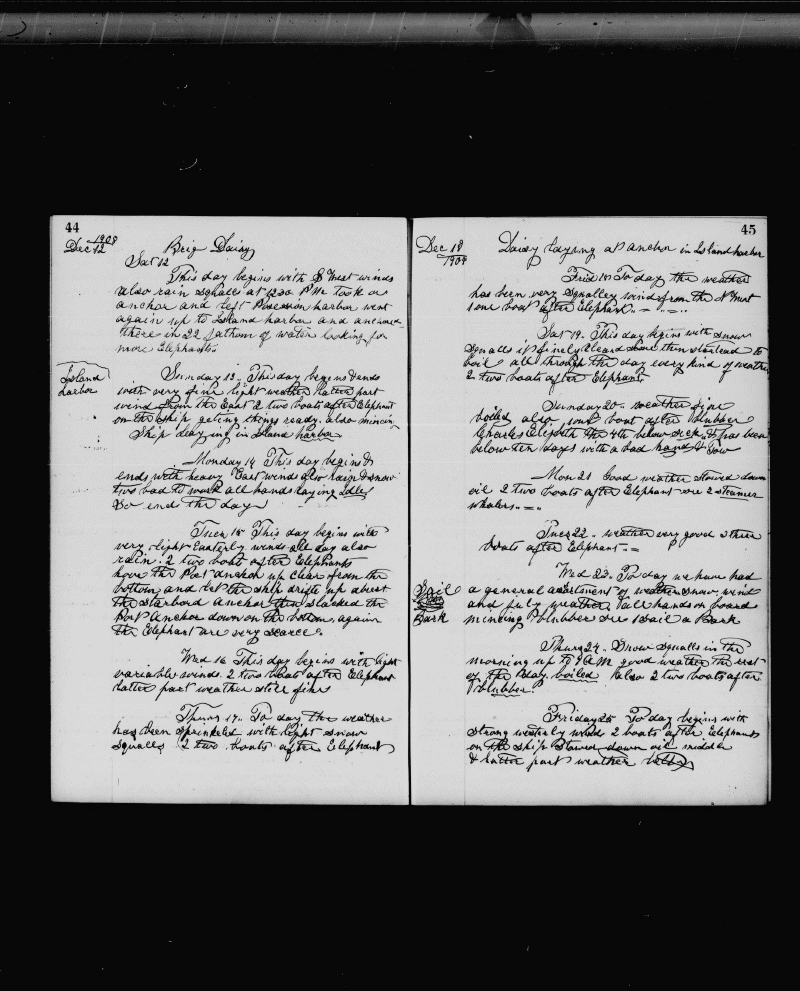 44
1908
Dec 12
Brig Daisy
Sat 12
This day begins with S West winds
also rain squalls at 12.30 P M. Took our
anchor and left Possession harbor went
again up to Island harbor and anchord
there in 22 fathom of water looking for
more Elephants.
Island
harbor
Sunday 13. This day begins & ends
with very fine light weather latter part
wind from the East 2 two boats after Elephant
on the ship geting things ready. also mincing
Ship laying in Island harbor
Monday 14 This day begins &
ends with heavy East winds also rain & snow
two bad to work all hands laying Idle
So end the day
Tues 15 This day begins with
very light Easterly winds all day also
rain. 2 two boats after Elephants
hove the Port anchor up clear from the
bottom and let the ship drift up abrest
the starbord anchor then slacked the
Port Anchor down on the bottom again
the Elephant are very scarce.
Wed 16 This day begins with light
variable winds. 2 two boats after Elephant
latter part weather still fine
Thurs 17. To day the weather
has been sprinkeled with light snow
squalls 2 two boats after Elephant
45
Dec 18
1908
Daisy laying at anchor in Island harbor
Frid 18 To day the weather
has been very squalley winds from the N West
1 one boat after Elephant.
Sat 19. This day begins with snow
squalls it finely cleard then started to
boil all through the day every kind of weather
2 two boats after Elephant
Sunday 20. weather fine
boiled also 1 one boat after blubber
Charles the 4th below sick. & has been
below ten days with a bad hand &
Mon 21 Good weather stowed down
oil 2 two boats after Elephant 2 steamer
whalers.
Tues 22. weather very good 3 three
boats after Elephant.
Sail
Bark
Wed 23. To day we have had
a general of weather snow wind
and fine weather all hands on board
mincing blubber sail a Bark
Thurs 24. Snow squalls in the
morning up to 9 A M good weather the rest
of the day. boiled also 2 two boats after
blubber
Friday 25 To day begins with
strong westerly winds 2 boats after Elephants
on the ship stowed down oil middle
& latter part weather